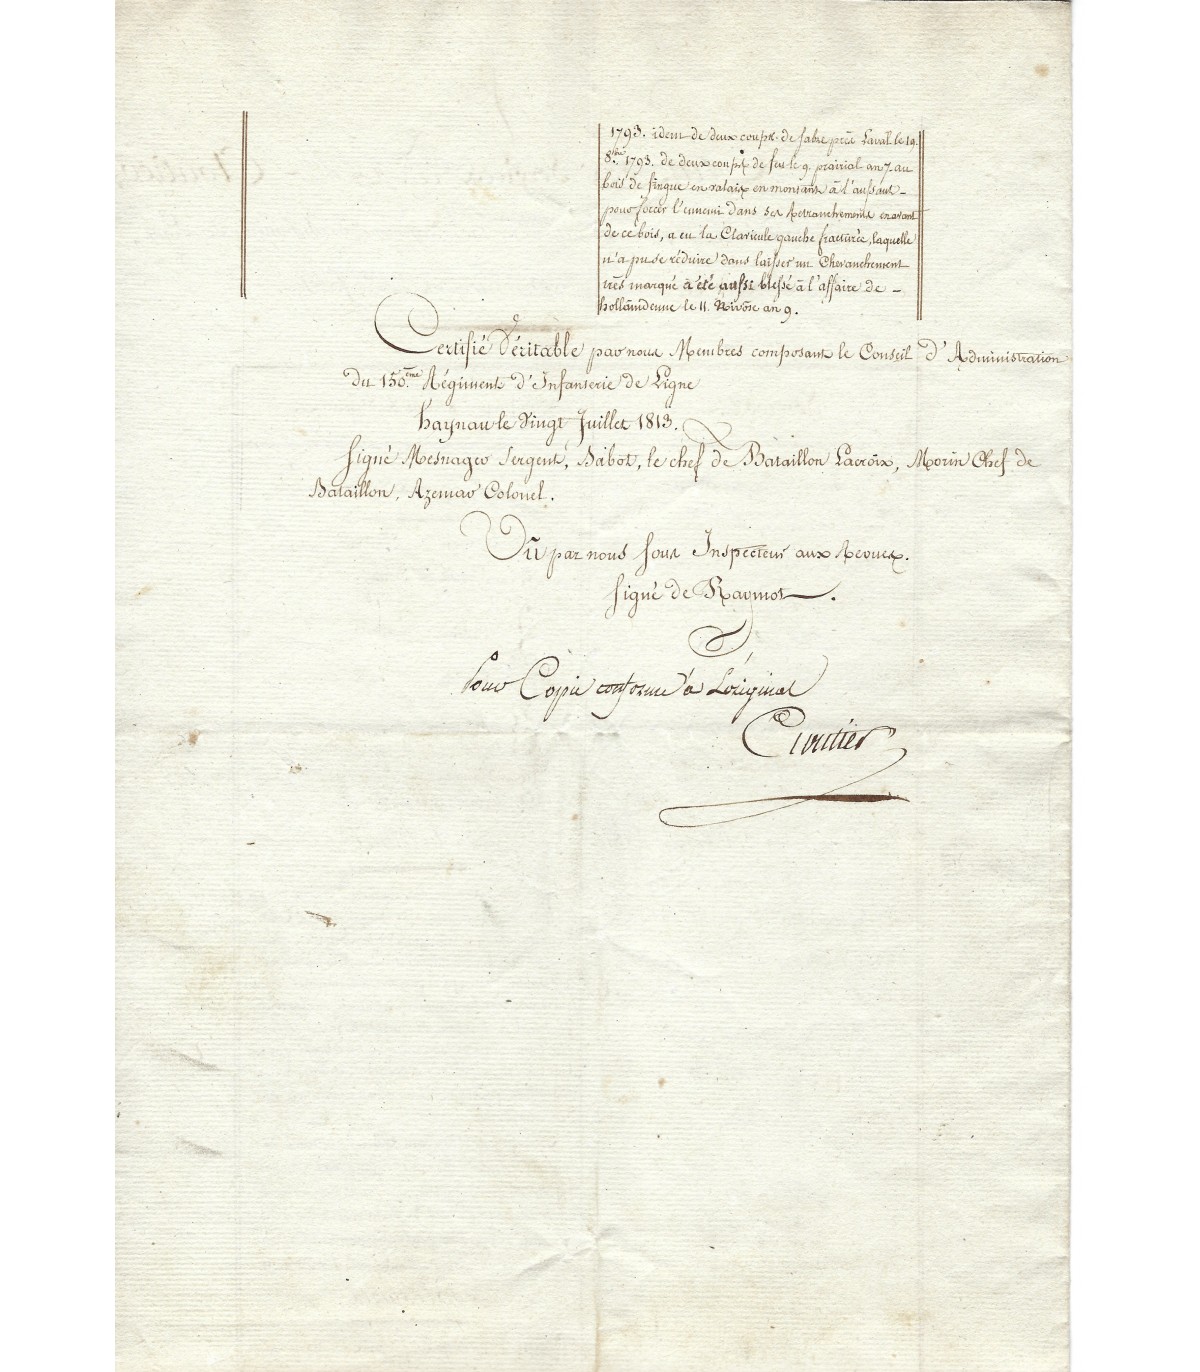 1793. idem de deux coups de sabre près Laval le 19.
8bre 1793. de deux coups de feu le 9. prairial an 7. au
bois de finque en valaix en montant à l'aussaut –
pour forcer l'ennemi dans ses Retranchements en avant
de ce bois, a eu la Clavicule gauche fracturée, laquelle
n'a pu se réduire dans laisser un Chevauchement
très marqué à été aussi blessé à l'affaire de –
hollaindenne le 11. Nivôse an 9.
Certifié Véritable par nous Membres composant le Conseil d'Administration
du 150.ème Régiment d'Infanterie de Ligne
haynau le Vingt Juillet 1813.
Signé Mesnager Sergent, Babot, le chef de Bataillon Lacroix, Morin Chef de
Bataillon, Azemar Colonel.
Vû par nous Sous Inspecteur aux Revues.
Signé de Raymot.
Pour Copie conforme à L'original